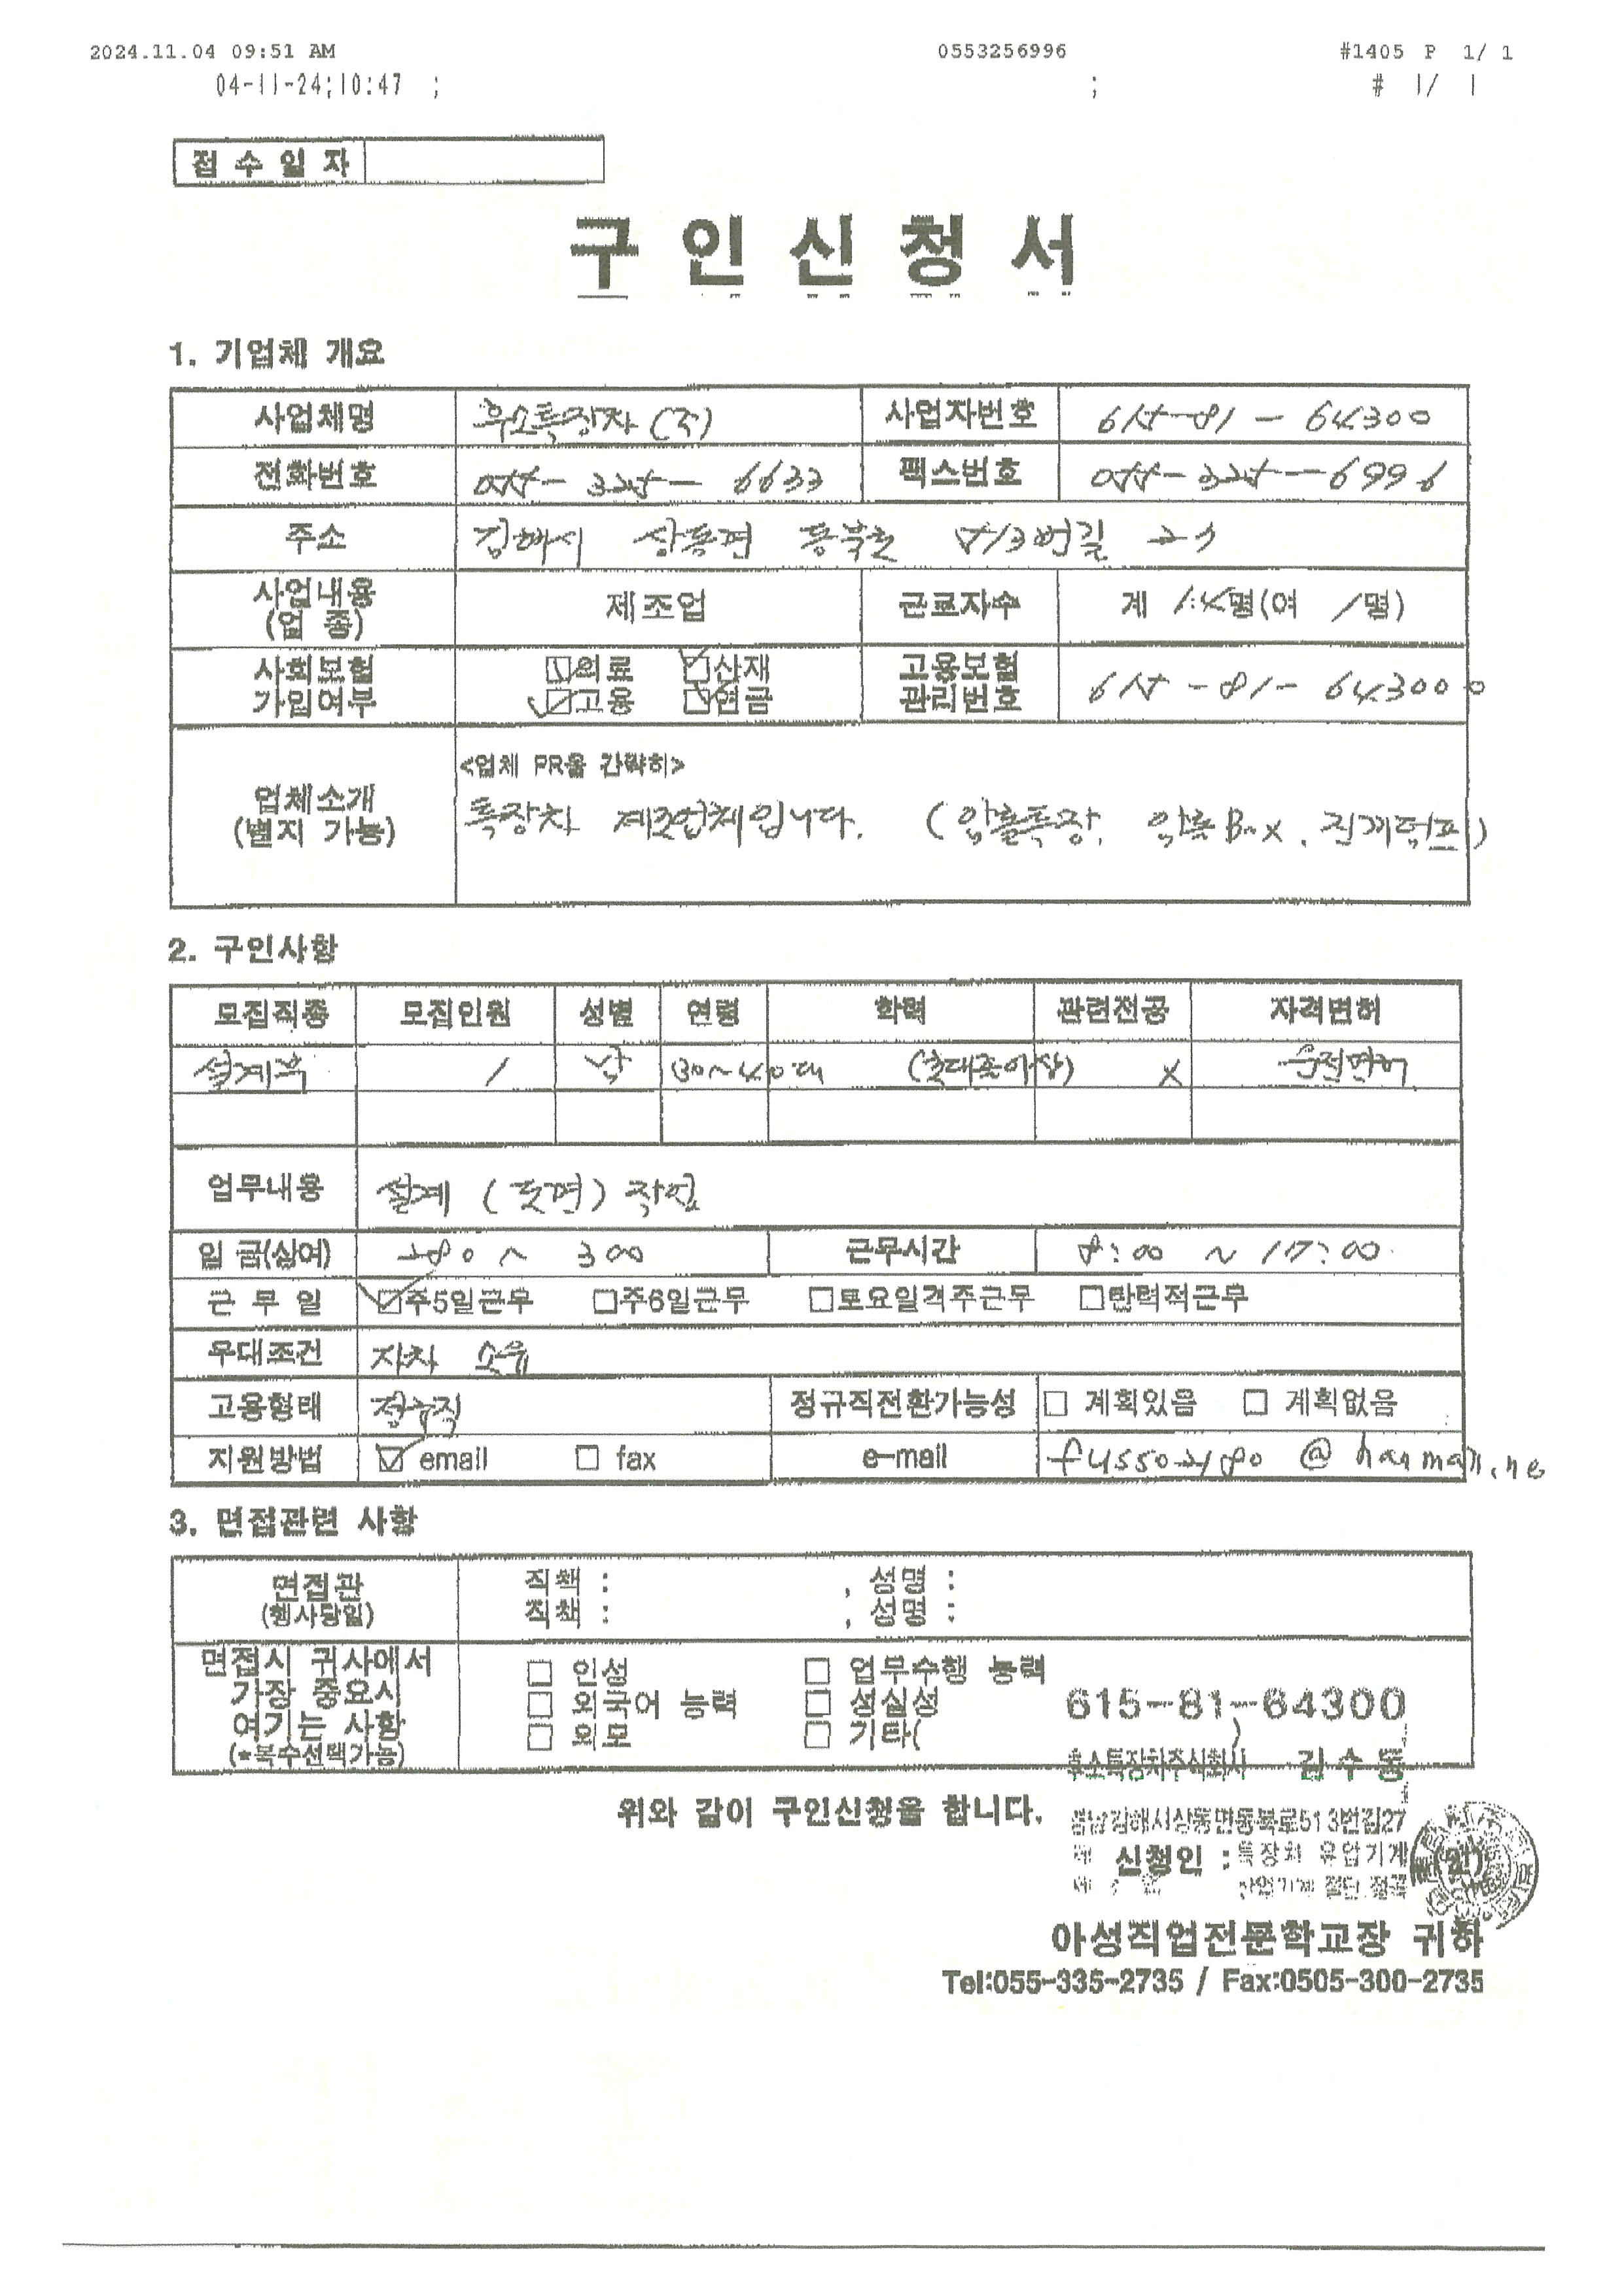 2024.11.04 09:51 AM 0553256996 #1405 P 1/ 1
04-11-24;10:47 ; ; # 1/ 1
접 수 일 자
구 인 신 청 서
1. 기업체 개요
사업체명 후소특장차 (주) 사업자번호 615-81-64300
전화번호 055-325-6633 팩스번호 055-325-6996
주소 김해시 상동면 동북로 513번길 27
사업내용 (업 종) 제조업 근로자수 계 명(여 1명)
사회보험 가입여부 ☑의료 ☑산재 고용보험 관리번호 615-81-64300 0
☑고용 ☑연금
업체소개 (별지 가능)
<업체 PR을 간략히>
특장차 제조업체입니다. (암롤특장, 암롤Box, 진개덤프)
2. 구인사항
모집직종 모집인원 성별 연령 학력 관련전공 자격면허
설계직 1 남 30~40대 (초대졸이상) X 운전면허
업무내용 설계 (도면) 작업
임 금(상여) 280 ~ 300 근무시간 8:00 ~ 17:00
근 무 일 ☑주5일근무 □주6일근무 □토요일격주근무 □탄력적근무
우대조건 자차 소유
고용형태 정규직 정규직전환가능성 □ 계획있음 □ 계획없음
지원방법 ☑ email □ fax e-mail fusso2180@hanmail.ne
3. 면접관련 사항
면접관 (행사당일)
직책 : , 성명 :
직책 : , 성명 :
면접시 귀사에서
가장 중요시
여기는 사항
(*복수선택가능)
□ 인성 □ 업무수행 능력
□ 외국어 능력 □ 성실성
□ 외모 □ 기타( )
615-81-64300
후소특장차주식회사 김 수 동
위와 같이 구인신청을 합니다.
경남김해시상동면동북로513번길27
신청인 : 특장차 유압기계 (인)
아성직업전문학교장 귀하
Tel:055-335-2735 / Fax:0505-300-2735